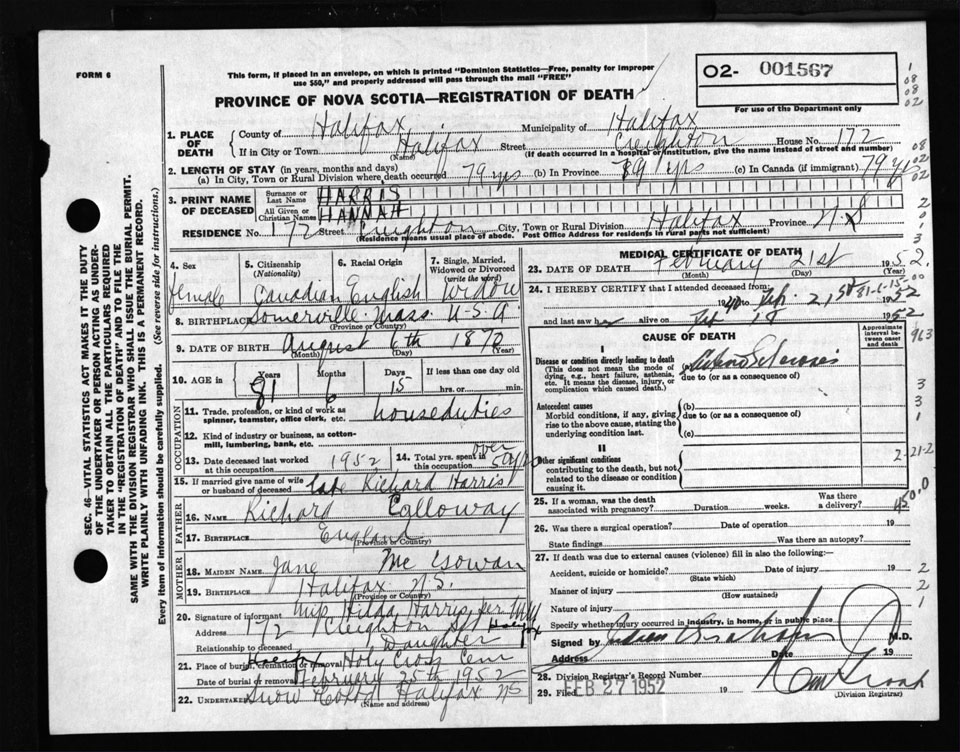 FORM 6
This form, if placed in an envelope, on which is printed "Dominion Statistics—Free, penalty for improper
use $50," and properly addressed will pass through the mail "FREE"
02- 001567
For use of the Department only
PROVINCE OF NOVA SCOTIA—REGISTRATION OF DEATH
1. PLACE OF DEATH
County of Halifax Municipality of Halifax
If in City or Town Halifax Street Creighton House No. 172
(Name) (If death occurred in a hospital or institution, give the name instead of street and number)
2. LENGTH OF STAY (in years, months and days)
(a) In City, Town or Rural Division where death occurred 79 yrs (b) In Province 79 yrs (c) In Canada (if immigrant) 79 yrs
3. PRINT NAME OF DECEASED
Surname or Last Name HARRIS
All Given or Christian Names HANNAH
RESIDENCE No. 172 Street Creighton City, Town or Rural Division Halifax Province N.S
(Residence means usual place of abode. Post Office Address for residents in rural parts not sufficient)
4. Sex
5. Citizenship (Nationality)
6. Racial Origin
7. Single, Married, Widowed or Divorced (write the word)
female Canadian English Widow
8. BIRTHPLACE Somerville Mass. U.S.A
(Province or Country)
9. DATE OF BIRTH August 6th 1870
(Month) (Day) (Year)
10. AGE in Years Months Days If less than one day old
81 6 15 hrs. or min.
OCCUPATION
11. Trade, profession, or kind of work as spinner, teamster, office clerk, etc. houseduties
12. Kind of industry or business, as cotton-mill, lumbering, bank, etc.
13. Date deceased last worked at this occupation 1952
14. Total yrs. spent in this occupation over 50 yrs
15. If married give name of wife or husband of deceased Late Richard Harris
FATHER
16. NAME Richard Calloway
17. BIRTHPLACE England
(Province or Country)
MOTHER
18. MAIDEN NAME Jane McGowan
19. BIRTHPLACE Halifax N.S.
(Province or Country)
20. Signature of informant Miss Hilda Harris per
Address 172 Creighton St Halifax
Relationship to deceased Daughter
21. Place of burial, cremation or removal Holy Cross Cem
Date of burial or removal February 25th 1952
22. UNDERTAKER Snow & Co Ltd Halifax NS
(Name and address)
MEDICAL CERTIFICATE OF DEATH
23. DATE OF DEATH February 21st 1952.
(Month) (Day) (Year)
24. I HEREBY CERTIFY that I attended deceased from:
to Feb. 21st 1952
81-6-15
and last saw her alive on Feb 18 1952
CAUSE OF DEATH
Approximate interval between onset and death
I
Disease or condition directly leading to death
(This does not mean the mode of dying, e.g., heart failure, asthenia, etc. It means the disease, injury, or complication which caused death.)
(a)
due to (or as a consequence of)
Antecedent causes
Morbid conditions, if any, giving rise to the above cause, stating the underlying condition last.
(b)
due to (or as a consequence of)
(c)
II
Other significant conditions
contributing to the death, but not related to the disease or condition causing it.
25. If a woman, was the death associated with pregnancy? Duration weeks. Was there a delivery?
26. Was there a surgical operation? Date of operation 19
State findings Was there an autopsy?
27. If death was due to external causes (violence) fill in also the following:—
Accident, suicide or homicide? Date of injury 19
(State which)
Manner of injury
(How sustained)
Nature of injury
Specify whether injury occurred in industry, in home, or in public place
Signed by M.D.
Address Date 19
28. Division Registrar's Record Number
29. Filed FEB 27 1952 19
(Division Registrar)
SEC. 46—VITAL STATISTICS ACT MAKES IT THE DUTY
OF THE UNDERTAKER OR PERSON ACTING AS UNDER-
TAKER TO OBTAIN ALL THE PARTICULARS REQUIRED
IN THE "REGISTRATION OF DEATH" AND TO FILE THE
SAME WITH THE DIVISION REGISTRAR WHO SHALL ISSUE THE BURIAL PERMIT.
WRITE PLAINLY WITH UNFADING INK. THIS IS A PERMANENT RECORD.
Every item of information should be carefully supplied. (See reverse side for instructions.)